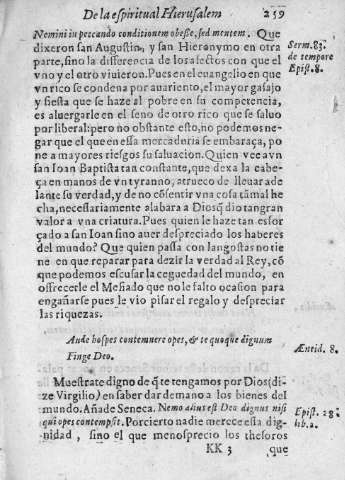 De la espiritual Hierusalem 259
Nemini in pescando conditionem obeße, sed mentem. Que
dixeron san Augustin, y san Hieronymo en otra
parte, sino la differencia de los afectos con que el
vno y el otro viuieron. Pues en el euangelio en que
vn rico se condena por auariento, el mayor gasajo
y fiesta que se haze al pobre en su competencia,
es aluergarle en el seno de otro rico que se saluo
por liberal: pero no obstante esto, no podemos ne-
gar que el que en essa mercaderia se embaraça, po
ne a mayores riesgos su saluacion. Quien vee a vn
san Ioan Baptista tan constante, que dexa la cabe-
ça en manos de vn tyranno, a trueco de lleuar ade
lante su verdad, y de no cõsentir vna cosa tã mal he
cha, necessariamente alabara a Dios q̃ dio tan gran
valor a vna criatura. Pues quien le haze tan esfor
çado a san Ioan sino auer despreciado los haberes
del mundo? Que quien passa con langostas no tie
ne en que reparar para dezir la verdad al Rey, cõ
que podemos escusar la ceguedad del mundo, en
offrecerle el Mesiado que no le falto ocasion para
engañarse pues le vio pisar el regalo y despreciar
las riquezas.
Serm. 83.
de tempore
Epist. 8.
Aude hospes contemnere opes, & te quoque dignum
Finge Deo.
Æntid. 8.
Muestrate digno de q̃ te tengamos por Dios (di-
ze Virgilio) en saber dar de mano a los bienes del
mundo. Añade Seneca. Nemo alius est Deo dignus nisi
qui opes contempsit. Por cierto nadie merece esta dig-
nidad, sino el que menosprecio los thesoros
Epist. 28.
lib. 2.
KK 3 que